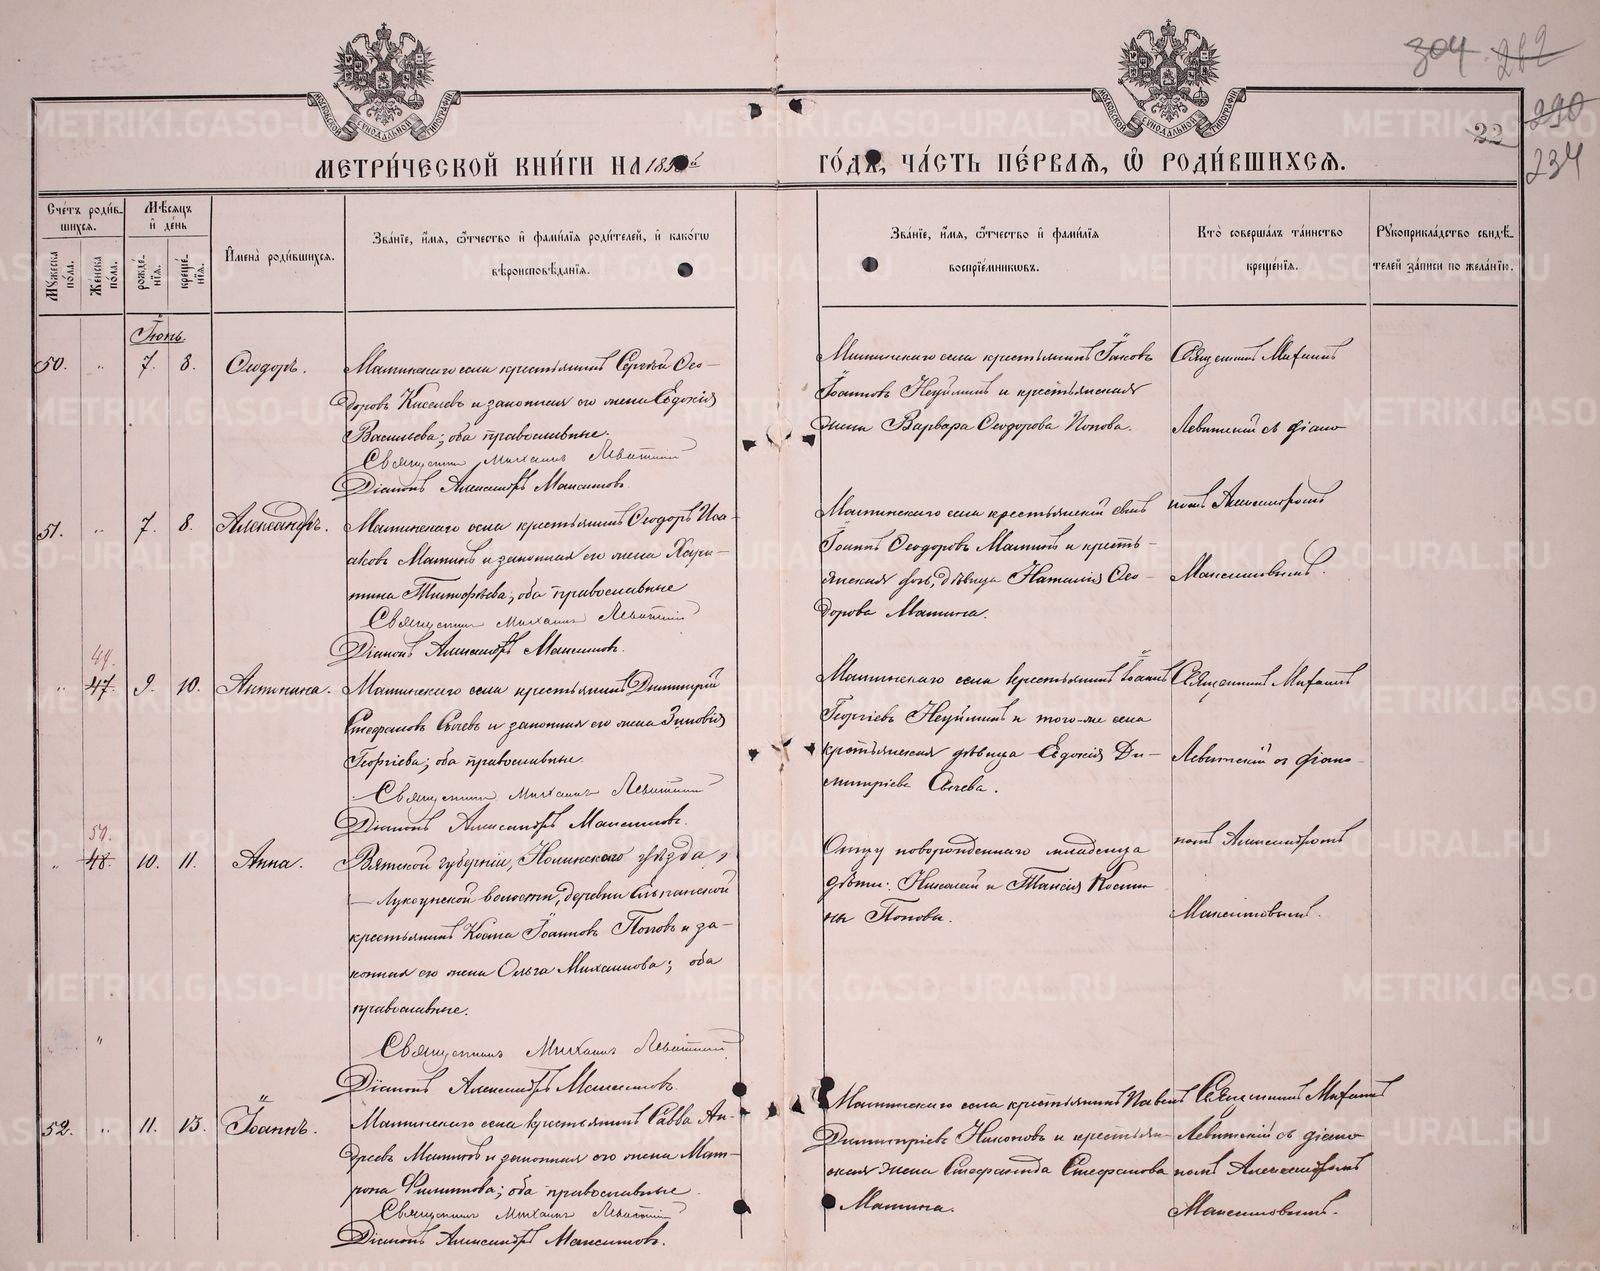 304. 212
290
22
234
МЕТРИ́ЧЕСКОЙ КНИ́ГИ НА 189 й
ГО́ДА, ЧА́СТЬ ПЕ́РВАЯ, Ѡ҆ РОДИ́ВШИХСЯ.
Сче́тъ роди́в-
шихся.
Мѣ́сяцъ
и҆ де́нь
Мꙋ́жеска
по́ла.
Же́нска
по́ла.
рожде́-
нїя.
креще́-
нїя.
И҆мена̀ роди́вшихся.
Зва́нїе, и҆́мя, ѻ҆́тчество и҆ фами́лїя роди́телей, и҆ како́гѡ
вѣроисповѣ́данїя.
Зва́нїе, и҆́мя, ѻ҆́тчество и҆ фами́лїя
воспрїе́мниковъ.
Кто̀ соверша́лъ та́инство
креще́нїя.
Рꙋкоприкла́дство свидѣ́-
телей за́писи по жела́нїю.
Іюнь.
50. " 7. 8. Ѳеодоръ.
Маминскаго села крестьянинъ Сергѣй Ѳео-
доровъ Киселевъ и законная его жена Евдокія
Васильева; оба православные.
Священникъ Михаилъ Левитскій
Діаконъ Александръ Максимовъ.
Маминскаго села крестьянинъ Іаковъ
Іоанновъ Неуйминъ и крестьянская
жена Варвара Ѳеодорова Попова.
Священникъ Михаилъ
Левитскій съ діако-
номъ Александромъ
Максимовымъ.
51. " 7. 8. Александръ.
Маминскаго села крестьянинъ Ѳеодоръ Иса-
аковъ Маминъ и законная его жена Хари-
тина Тимоѳѣева; оба православные
Священникъ Михаилъ Левитскій
Діаконъ Александръ Максимовъ.
Маминскаго села крестьянскій сынъ
Іоаннъ Ѳеодоровъ Маминъ и кресть-
янская дочь, дѣвица Наталія Ѳео-
дорова Мамина.
49.
" 47. 9. 10. Антонина.
Маминскаго села крестьянинъ Димитрій
Стефановъ Сычевъ и законная его жена Зиновія
Георгіева; оба православные.
Священникъ Михаилъ Левитскій
Діаконъ Александръ Максимовъ.
Маминскаго села крестьянинъ Іоаннъ
Георгіевъ Неуйминъ и того-же села
крестьянская дѣвица Евдокія Ди-
митріева Сычева.
Священникъ Михаилъ
Левитскій съ діако-
номъ Александромъ
Максимовымъ.
50.
" 48. 10. 11. Анна.
Вятской губерніи, Нолинскаго уѣзда,
волости, деревни
крестьянинъ Косма Іоанновъ Поповъ и за-
конная его жена Ольга Михаилова; оба
православные.
Священникъ Михаилъ Левитскій
Діаконъ Александръ Максимовъ.
Отцу новорожденнаго младенца
дѣти: Николай и Таисія Косми-
ны Поповы.
"
52. " 11. 13. Іоаннъ.
Маминскаго села крестьянинъ Савва Ан-
дреевъ Маминъ и законная его жена Мат-
рона Филиппова; оба православные.
Священникъ Михаилъ Левитскій
Діаконъ Александръ Максимовъ.
Маминскаго села крестьянинъ Павелъ
Димитріевъ Никоновъ и крестьян-
ская жена Стефанида Стефанова
Мамина.
Священникъ Михаилъ
Левитскій съ діако-
номъ Александромъ
Максимовымъ.
METRIKI.GASO-URAL.RU